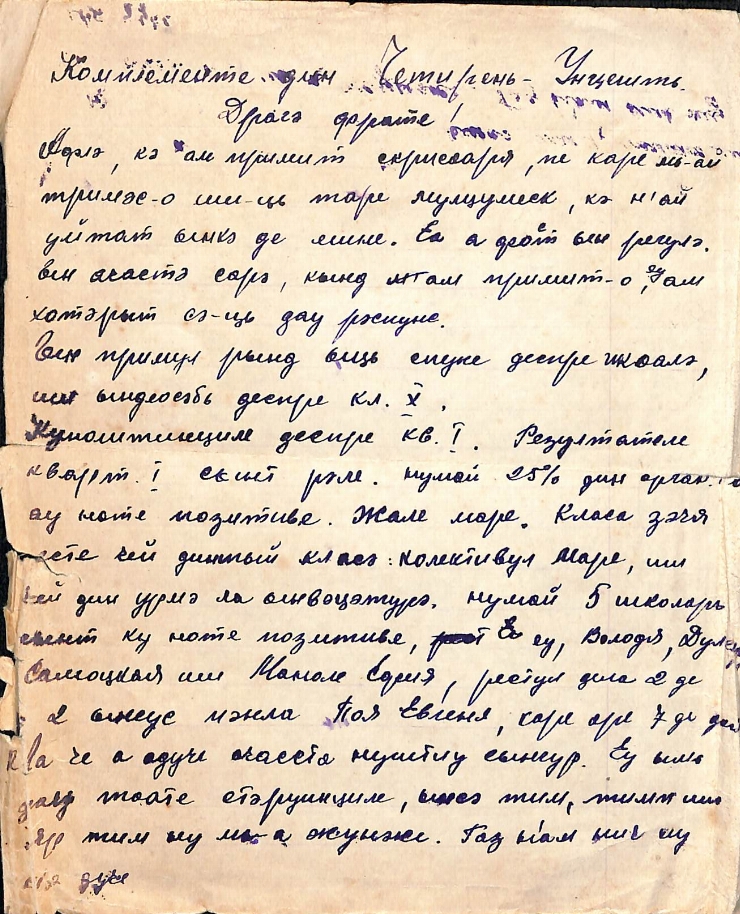 Комплементе дин Четирень-Унцешть.
Драгэ фрате!
Афлэ, кэ ам примит скрисоаря, пе каре мь-ай
тримэс-о ши-ць таре мулцумеск, кэ н'ай
уйтат ынкэ де мине. Еа а фост ын регулэ.
Ын ачастэ сарэ, кынд л'ам примит-о, ам
хотэрыт сэ-ць дау рэспунс.
Ын примул рынд выць спуне деспре шкоалэ,
ши ындеосэбь деспре кл. X.
Куноштинциле деспре кв. I. Резултателе
кварт. I сынт рэле. Нумай 25% дин орган.
ау ноте позитиве. Жале маре. Класа зэчя
есте чей динтый класэ: колективул маре, ши
чей дин урмэ ла ынвэцэтурэ. Нумай 5 школарь
сынт ку ноте позитиве, Ес еу, Володя,
Самоцкая ши Маноле София, рестул дела 2 де
2 ынсус пэнла Поя Евгеня, каре аре 7 де
ла че а адуче ачаста нуштиу сынгур. Еу ымь
дау тоате стэруинциле, ынсэ тим, тимп ши
яр тим ну мь-а жунже. Газ н'ам нич ну